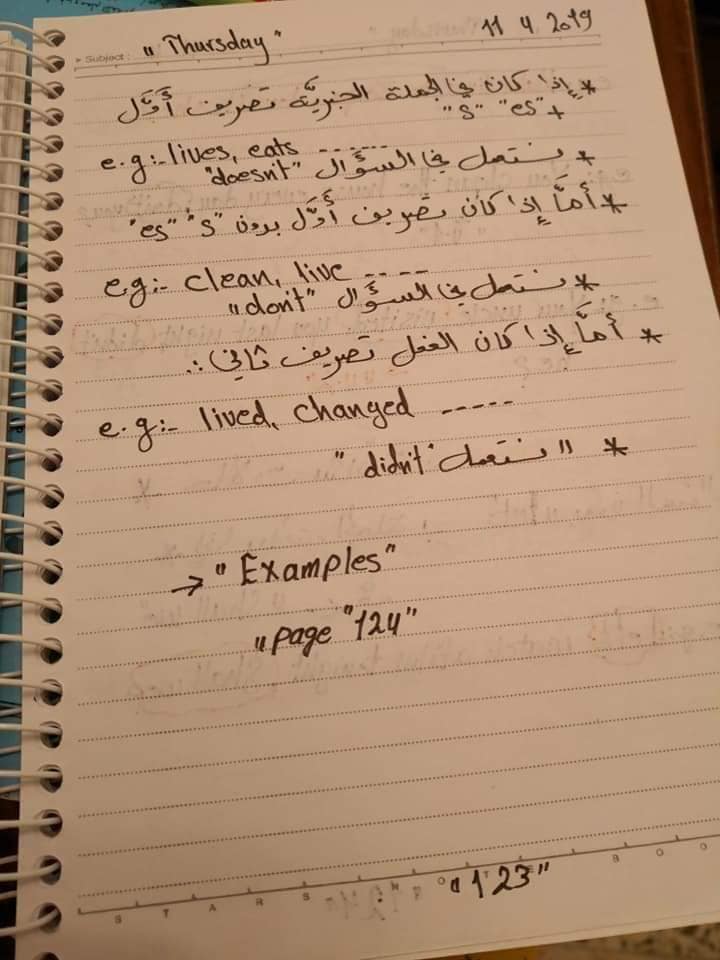 Subject : "Thursday" 11 4 2019
* إذا كان في الجملة الخبريَّة تصريف أَوَّل
+ "es" "s"
e.g:- lives, eats ------
* نستعمل في السؤال "doesn't"
* أمَّا إذا كان تصريف أَوَّل بدون "s" "es"
e.g:- clean, live ----
* نستعمل في السؤال "don't"
* أمَّا إذا كان الفعل تصريف ثاني :.
e.g:- lived, changed -----
* " نستعمل "didn't"
→ "Examples"
"page "124"
STARSNOTEBOO
"123"